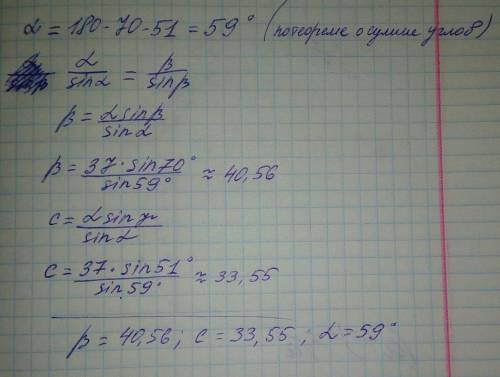 α = 180-70-51 = 59° (по теореме о сумме углов)
α/sinα = β/sinβ
β = α sinβ / sinα
β = 37·sin70° / sin59° ≈ 40,56
c = α sinγ / sinα
c = 37·sin51° / sin59° ≈ 33,55
β = 40,56; c = 33,55; α = 59°